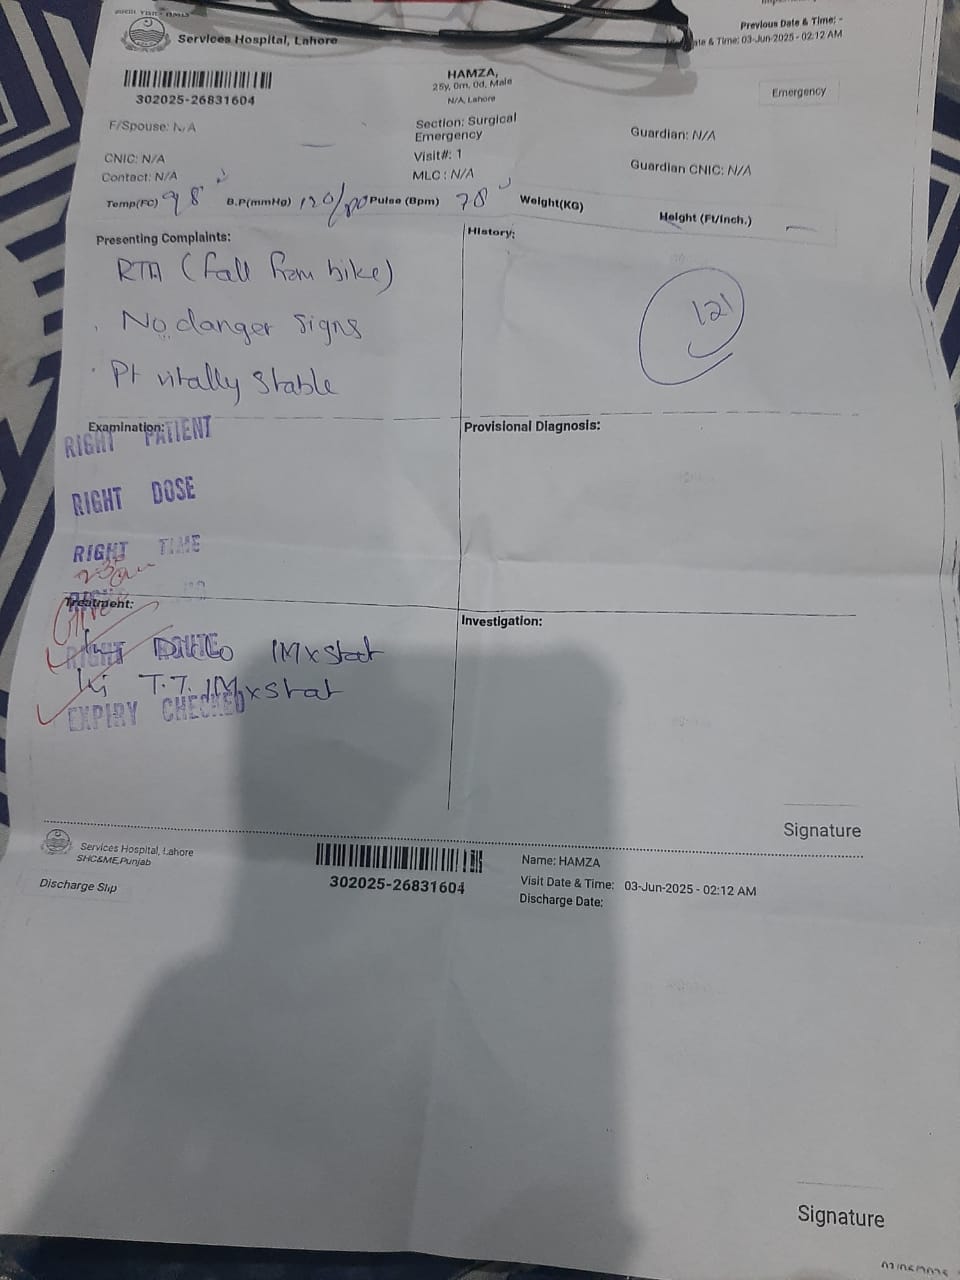 Services Hospital, Lahore
Previous Date & Time: -
Date & Time: 03-Jun-2025 - 02:12 AM
302025-26831604
HAMZA,
25y, 0m, 0d, Male
N/A, Lahore
Emergency
F/Spouse: N/A
Section: Surgical Emergency
Guardian: N/A
CNIC: N/A
Visit#: 1
Guardian CNIC: N/A
Contact: N/A
MLC : N/A
Temp(FC) 98 B.P(mmHg) 120/80 Pulse (Bpm) 78 Weight(KG) Height (Ft/Inch.)
Presenting Complaints:
History:
RTA (Fall from bike)
No danger signs
Pt vitally stable
121
Examination:
Provisional Diagnosis:
RIGHT PATIENT
RIGHT DOSE
RIGHT TIME
Treatment:
Investigation:
RIGHT IM x stat
T.T. IM x stat
EXPIRY CHECKED
Signature
Services Hospital, Lahore
SHC&ME,Punjab
Discharge Slip
302025-26831604
Name: HAMZA
Visit Date & Time: 03-Jun-2025 - 02:12 AM
Discharge Date:
Signature